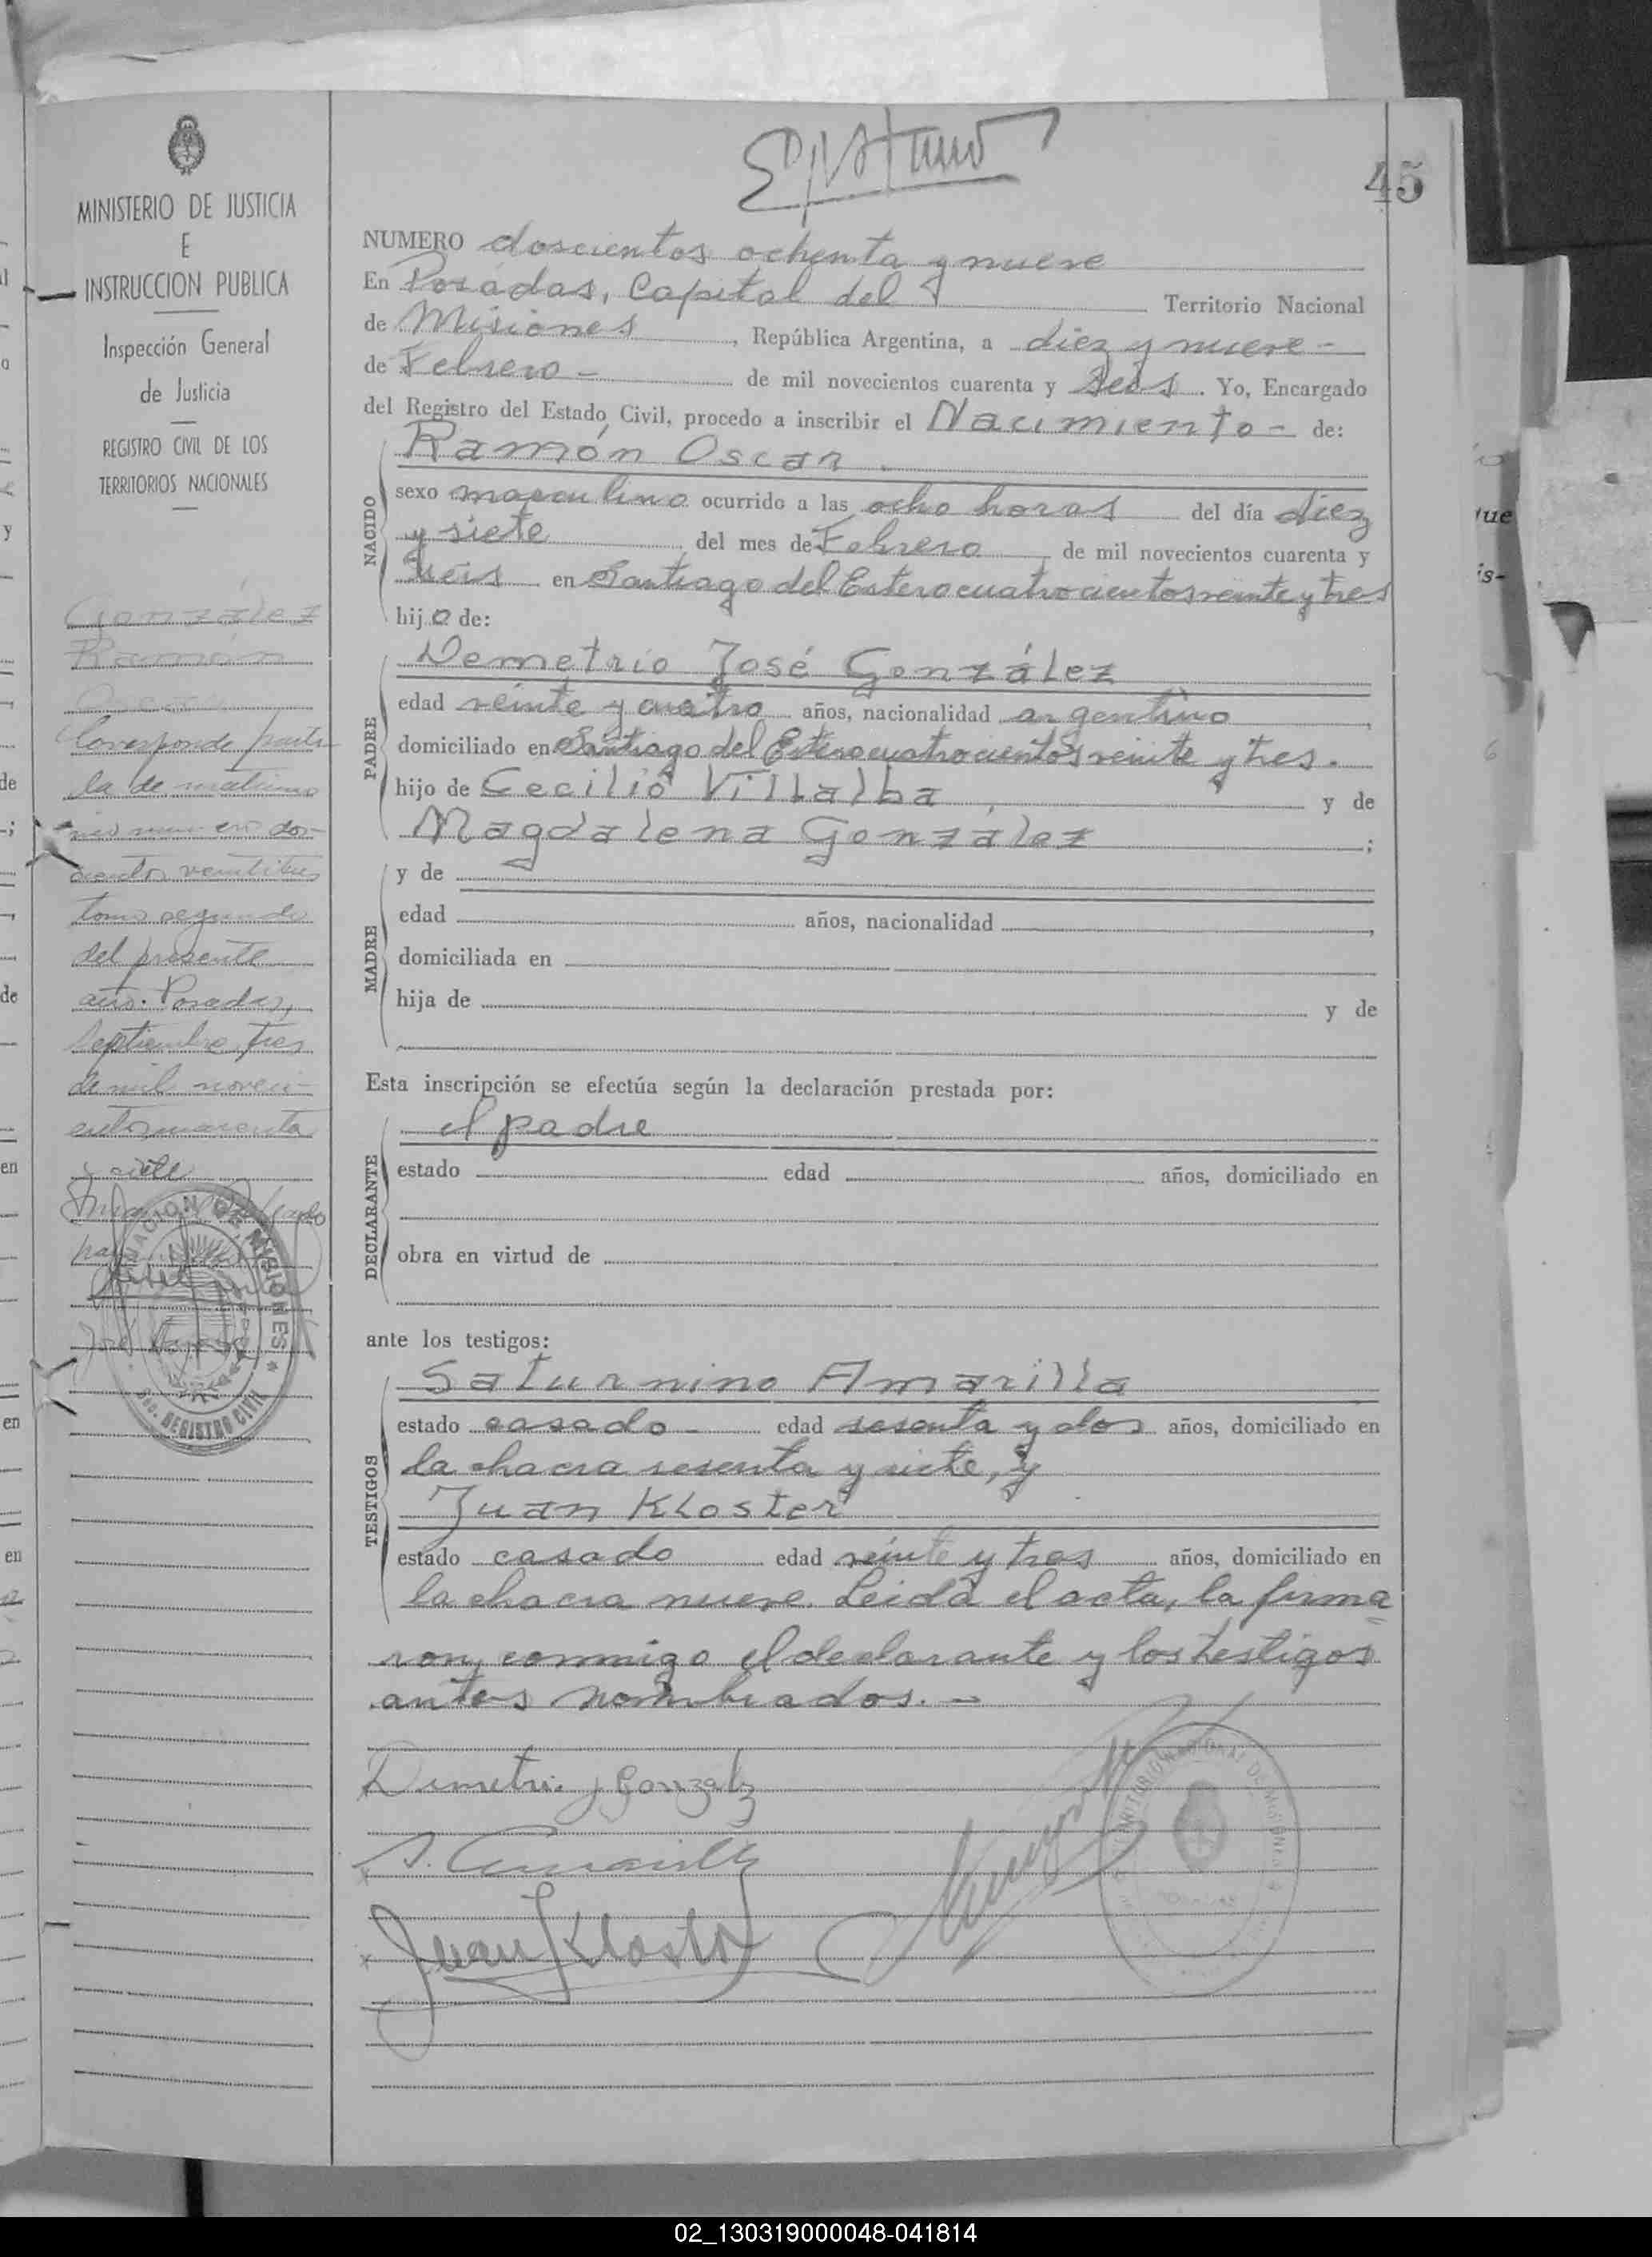 45
MINISTERIO DE JUSTICIA
E
INSTRUCCION PUBLICA
Inspección General
de Justicia
REGISTRO CIVIL DE LOS
TERRITORIOS NACIONALES
González
Ramón
Oscar
Corresponde parti-
la de matrimo
nio número dos-
cientos veintitres
tomo segundo
del presente
año. Posadas,
Septiembre tres
de mil noveci-
entos cuarenta
y siete
NUMERO doscientos ochenta y nueve
En Posadas, Capital del Territorio Nacional
de Misiones, República Argentina, a diez y nueve-
de Febrero- de mil novecientos cuarenta y seis. Yo, Encargado
del Registro del Estado Civil, procedo a inscribir el Nacimiento- de:
Ramón Oscar.
NACIDO
sexo masculino ocurrido a las ocho horas del día diez
y siete del mes de Febrero de mil novecientos cuarenta y
seis en Santiago del Estero cuatrocientos veinte y tres
hijo de:
Demetrio José González
PADRE
edad veinte y cuatro años, nacionalidad argentino,
domiciliado en Santiago del Estero cuatrocientos veinte y tres.
hijo de Cecilio Villalba, y de
Magdalena González;
MADRE
y de
edad años, nacionalidad,
domiciliada en
hija de y de
Esta inscripción se efectúa según la declaración prestada por:
el padre
DECLARANTE
estado edad años, domiciliado en
obra en virtud de
ante los testigos:
Saturnino Amarilla
TESTIGOS
estado casado- edad sesenta y dos años, domiciliado en
la chacra sesenta y siete, y
Juan Kloster
estado casado edad veinte y tres años, domiciliado en
la chacra nueve. Leida el acta, la firma
ron, conmigo el declarante y los testigos
antes nombrados.-
Demetrio J Gonzalez
S. Amarilla
Juan Kloster
02_130319000048-041814